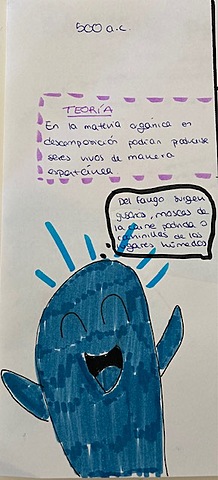 500 a.c.
TEORÍA
En la materia orgánica en
descomposición podían producirse
seres vivos de manera
espontánea
Del fango surgen
gusanos, moscas de
la carne podrida o
cochinillas de los
lugares húmedos